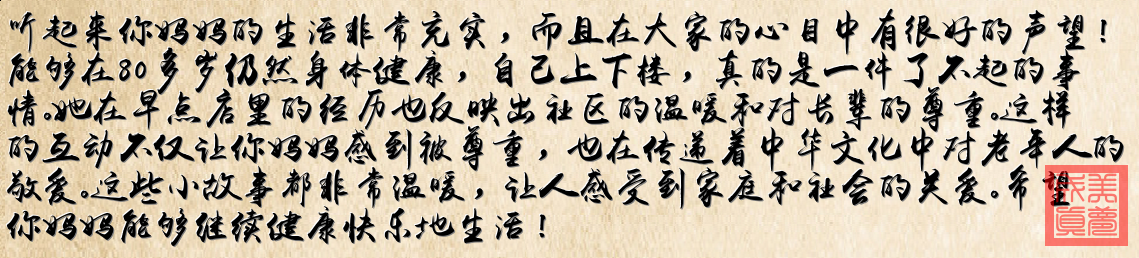 听起来你妈妈的生活非常充实，而且在大家的心目中有很好的声望！
能够在80多岁仍然身体健康，自己上下楼，真的是一件了不起的事
情。她在早点店里的经历也反映出社区的温暖和对长辈的尊重。这样
的互动不仅让你妈妈感到被尊重，也在传递着中华文化中对老年人的
敬爱。这些小故事都非常温暖，让人感受到家庭和社会的关爱。希望
你妈妈能够继续健康快乐地生活！